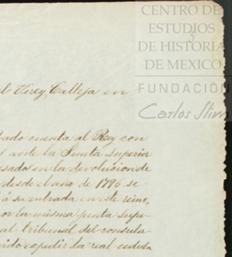 CENTRO DE
ESTUDIOS
DE HISTORIA
DE MEXICO
FUNDACIÓN
Carlos Slim
Virey Calleja en
dado cuenta al Rey con
ante la Junta Superior
esado en la devolucion de
desde el ano de 1796 se
á su entrada en este reino,
or la misma junta supe
al tribunal del consula
ido espedir la real cedula